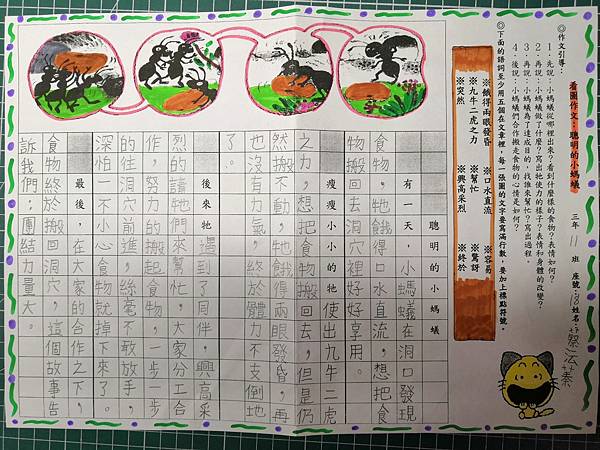 看圖作文:聰明的小螞蟻
三年11班 座號:18 姓名:蔡
◎作文引導:
1.先說:小螞蟻從哪裡出來?看到什麼樣的食物?表情如何?
2.再說:小螞蟻做了什麼?寫出牠使力的樣子?表情和身體的改變?
3.再說:小螞蟻為了達成目的,找誰來幫忙?寫出過程。
4.後說:小螞蟻們合作搬走食物的心情是如何?
◎下面的語詞至少用五個在文章裡,每一張圖的文字要寫滿行數,要加上標點符號。
※餓得兩眼發昏 ※口水直流 ※容易
※九牛二虎之力 ※幫忙 ※驚訝
※突然 ※興高采烈 ※終於
聰明的小螞蟻
有一天,小螞蟻在洞口發現
食物,牠餓得口水直流,想把食
物搬回去洞穴裡好好享用。
瘦瘦小小的牠使出九牛二虎
之力,想把食物搬回去,但是仍
然搬不動,牠餓得兩眼發昏,再
也沒有力氣,終於體力不支倒地
了。
後來牠遇到了同伴,興高采
烈的請牠們來幫忙,大家分工合
作,努力的搬起食物,一步一步
的往洞穴前進,絲毫不敢放手,
深怕一不小心食物就掉下來了。
最後,在大家的合作之下,
食物終於搬回洞穴。這個故事告
訴我們:團結力量大。